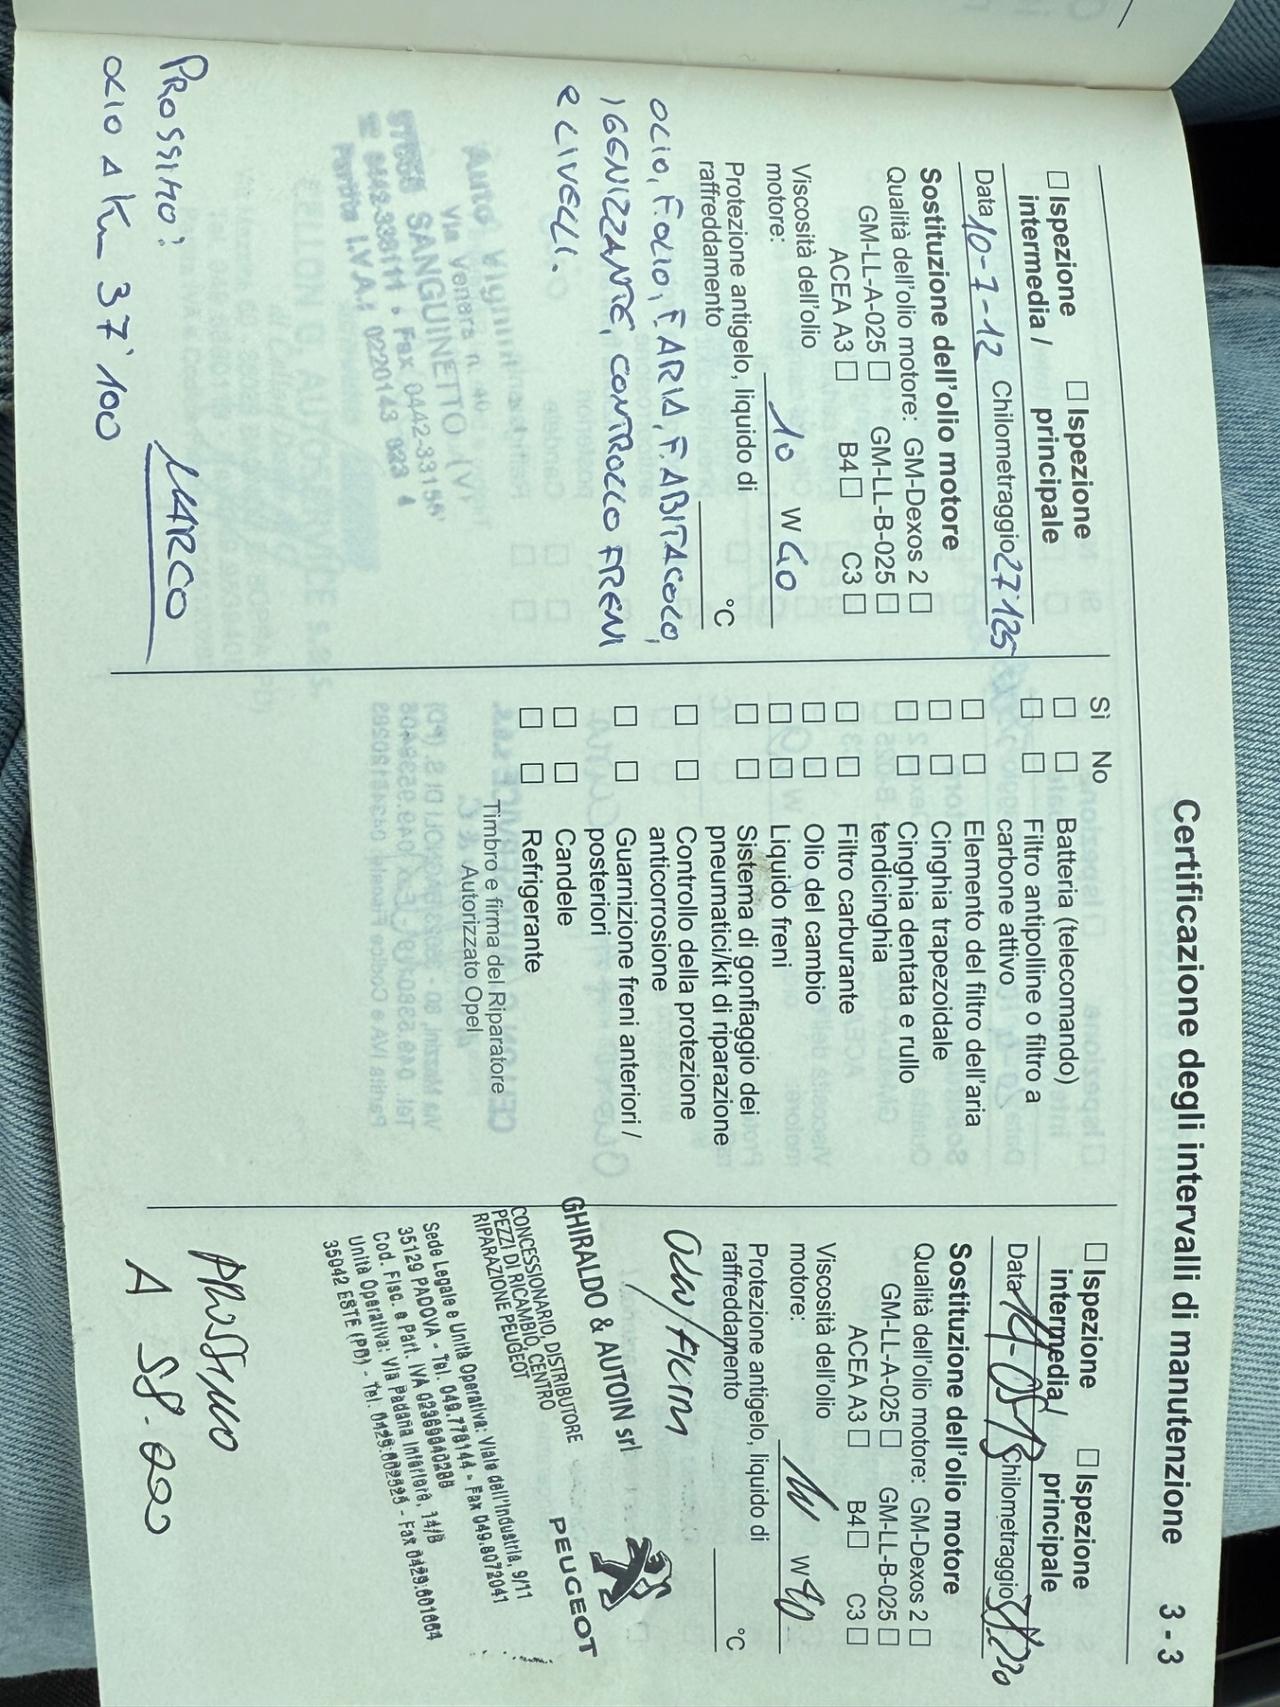 Certificazione degli intervalli di manutenzione 3 - 3
Ispezione intermedia /
Ispezione principale
Data 10-7-12 Chilometraggio 27125
Sostituzione dell'olio motore
Qualità dell'olio motore: GM-Dexos 2
GM-LL-A-025 GM-LL-B-025
ACEA A3 B4 C3
Viscosità dell'olio
motore: 10 W 60
Protezione antigelo, liquido di
raffreddamento °C
OLIO, F.OLIO, F.ARIA, F.ABITACOLO,
IGENIZZANTE, CONTROLLO FRENI
E LIVELLI.
PROSSIMO:
OLIO A Km 37'100
MARCO
Sì No
Batteria (telecomando)
Filtro antipolline o filtro a
carbone attivo
Elemento del filtro dell'aria
Cinghia trapezoidale
Cinghia dentata e rullo
tendicinghia
Filtro carburante
Olio del cambio
Liquido freni
Sistema di gonfiaggio dei
pneumatici/kit di riparazione
Controllo della protezione
anticorrosione
Guarnizione freni anteriori /
posteriori
Candele
Refrigerante
Timbro e firma del Riparatore
Autorizzato Opel
Ispezione intermedia /
Ispezione principale
Data Chilometraggio
Sostituzione dell'olio motore
Qualità dell'olio motore: GM-Dexos 2
GM-LL-A-025 GM-LL-B-025
ACEA A3 B4 C3
Viscosità dell'olio
motore: W 40
Protezione antigelo, liquido di
raffreddamento °C
GHIRALDO & AUTOIN srl
CONCESSIONARIO, DISTRIBUTORE
PEZZI DI RICAMBIO, CENTRO
RIPARAZIONE PEUGEOT
PEUGEOT
Sede Legale e Unità Operativa: Viale dell'Industria, 9/11
35129 PADOVA - Tel. 049.776144 - Fax 049.8072041
Cod. Fisc. e Part. IVA
Unità Operativa: Via Padana Inferiore, 14/B
35042 ESTE (PD) - Tel. Fax
PROSSIMO
A